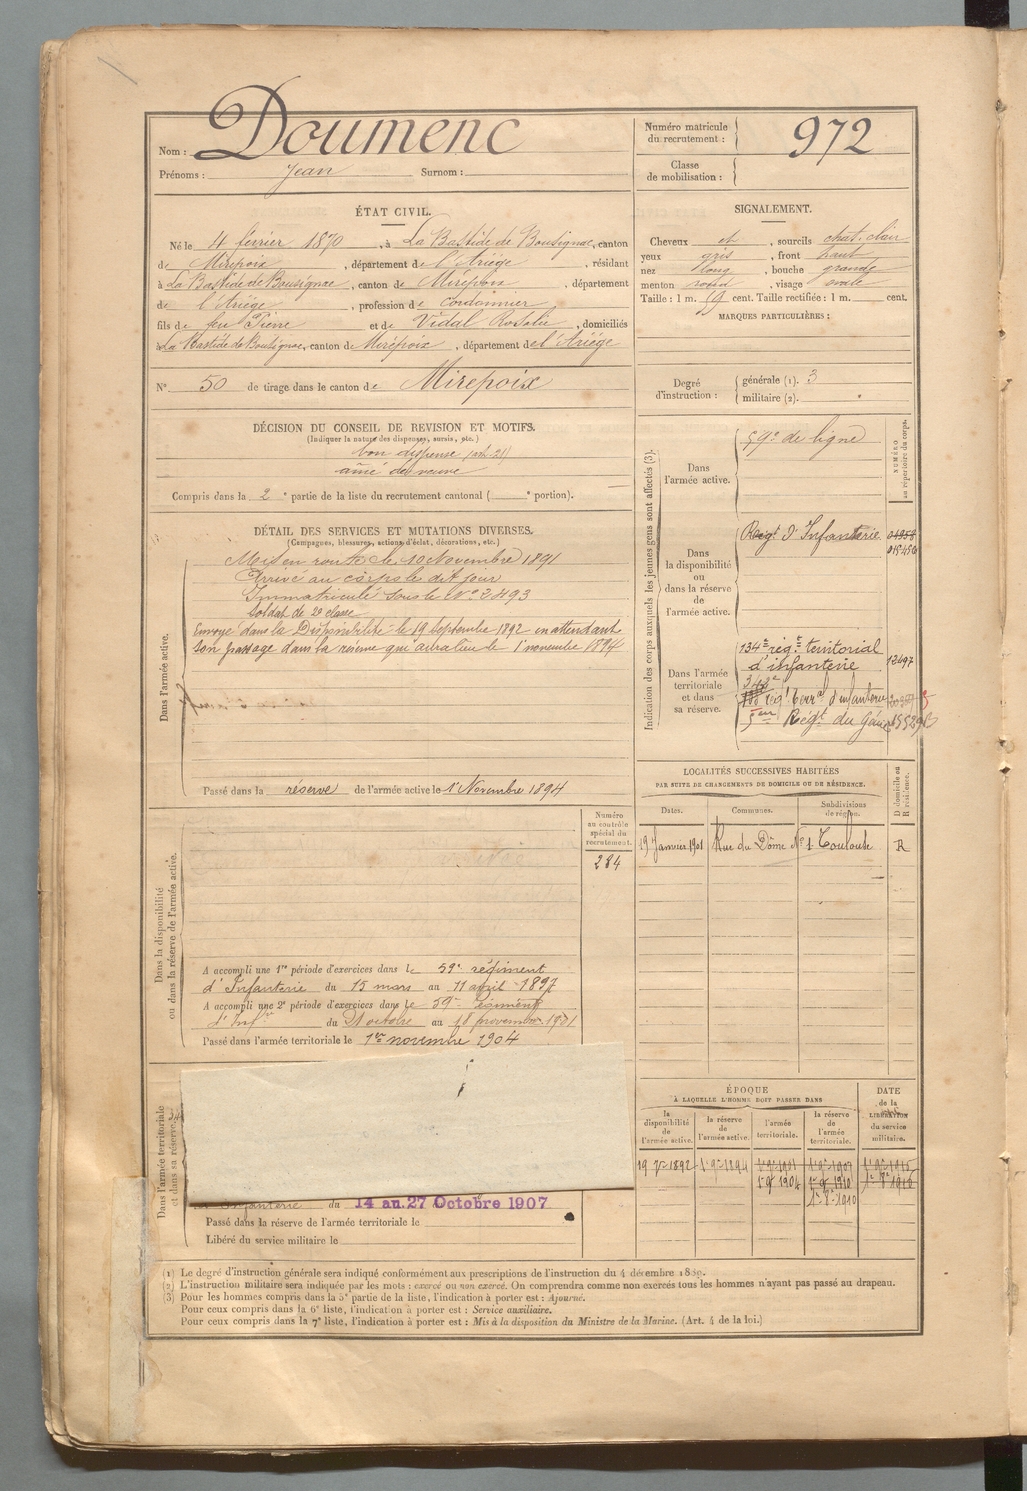 Nom : Doumenc
Prénoms : Jean Surnom :
Numéro matricule du recrutement : 972
Classe de mobilisation :
ÉTAT CIVIL.
Né le 4 février 1870, à La Bastide de Bousignac, canton
de Mirepoix, département de l'Ariège, résidant
à La Bastide de Bousignac, canton de Mirepoix, département
de l'Ariège, profession de cordonnier
fils de feu Pierre et de Vidal Rosalie, domiciliés
à La Bastide de Bousignac, canton de Mirepoix, département de l'Ariège
N° 50 de tirage dans le canton de Mirepoix
SIGNALEMENT.
Cheveux et, sourcils chat. clair
yeux gris, front haut
nez long, bouche grande
menton rond, visage ovale
Taille : 1 m. cent. Taille rectifiée : 1 m. cent.
MARQUES PARTICULIÈRES :
Degré d'instruction : générale (1). 3
militaire (2).
DÉCISION DU CONSEIL DE REVISION ET MOTIFS.
(Indiquer la nature des dispenses, sursis, etc.)
bon dispensé (art. 21)
aîné de veuve
Compris dans la 2e partie de la liste du recrutement cantonal ( e portion).
DÉTAIL DES SERVICES ET MUTATIONS DIVERSES.
(Campagnes, blessures, actions d'éclat, décorations, etc.)
Dans l'armée active.
Mis en route le 10 Novembre 1891
Arrivé au corps le dit jour
Immatriculé sous le N° 2493
soldat de 2e classe
Envoyé dans la Disponibilité le 19 Septembre 1892 en attendant
son passage dans la réserve qui aura lieu le 1 novembre 1894
Passé dans la réserve de l'armée active le 1 Novembre 1894
Indication des corps auxquels les jeunes gens sont affectés (3).
NUMÉRO au répertoire du corps.
Dans l'armée active.
59e de ligne
Dans la disponibilité ou dans la réserve de l'armée active.
Régt d'Infanterie
Dans l'armée territoriale et dans sa réserve.
134e régt territorial
d'infanterie 12497
régt terral d'infanterie
5em Régt du Génie
LOCALITÉS SUCCESSIVES HABITÉES
PAR SUITE DE CHANGEMENTS DE DOMICILE OU DE RÉSIDENCE.
D domicile ou R résidence.
Dates. Communes. Subdivisions de région.
19 Janvier 1901 Rue du Dôme N° 1 Toulouse R
Dans la disponibilité ou dans la réserve de l'armée active.
Numéro au contrôle spécial du recrutement.
284
A accompli une 1re période d'exercices dans le 59e régiment
d'Infanterie du 15 mars au 11 avril 1897
A accompli une 2e période d'exercices dans le 59e régiment
d'Infie du 21 octobre au 18 novembre 1901
Passé dans l'armée territoriale le 1er novembre 1904
Dans l'armée territoriale et dans sa réserve.
d'Infanterie du 14 au 27 Octobre 1907
Passé dans la réserve de l'armée territoriale le
Libéré du service militaire le
ÉPOQUE
À LAQUELLE L'HOMME DOIT PASSER DANS
DATE de la LIBÉRATION du service militaire.
la disponibilité de l'armée active.
la réserve de l'armée active.
l'armée territoriale.
la réserve de l'armée territoriale.
19 7re 1892 1 9e 1894 1 9e 1901
1 9e 1904
(1) Le degré d'instruction générale sera indiqué conformément aux prescriptions de l'instruction du 4 décembre 1889.
(2) L'instruction militaire sera indiquée par les mots : exercé ou non exercé. On comprendra comme non exercés tous les hommes n'ayant pas passé au drapeau.
(3) Pour les hommes compris dans la 5e partie de la liste, l'indication à porter est : Ajourné.
Pour ceux compris dans la 6e liste, l'indication à porter est : Service auxiliaire.
Pour ceux compris dans la 7e liste, l'indication à porter est : Mis à la disposition du Ministre de la Marine. (Art. 4 de la loi.)